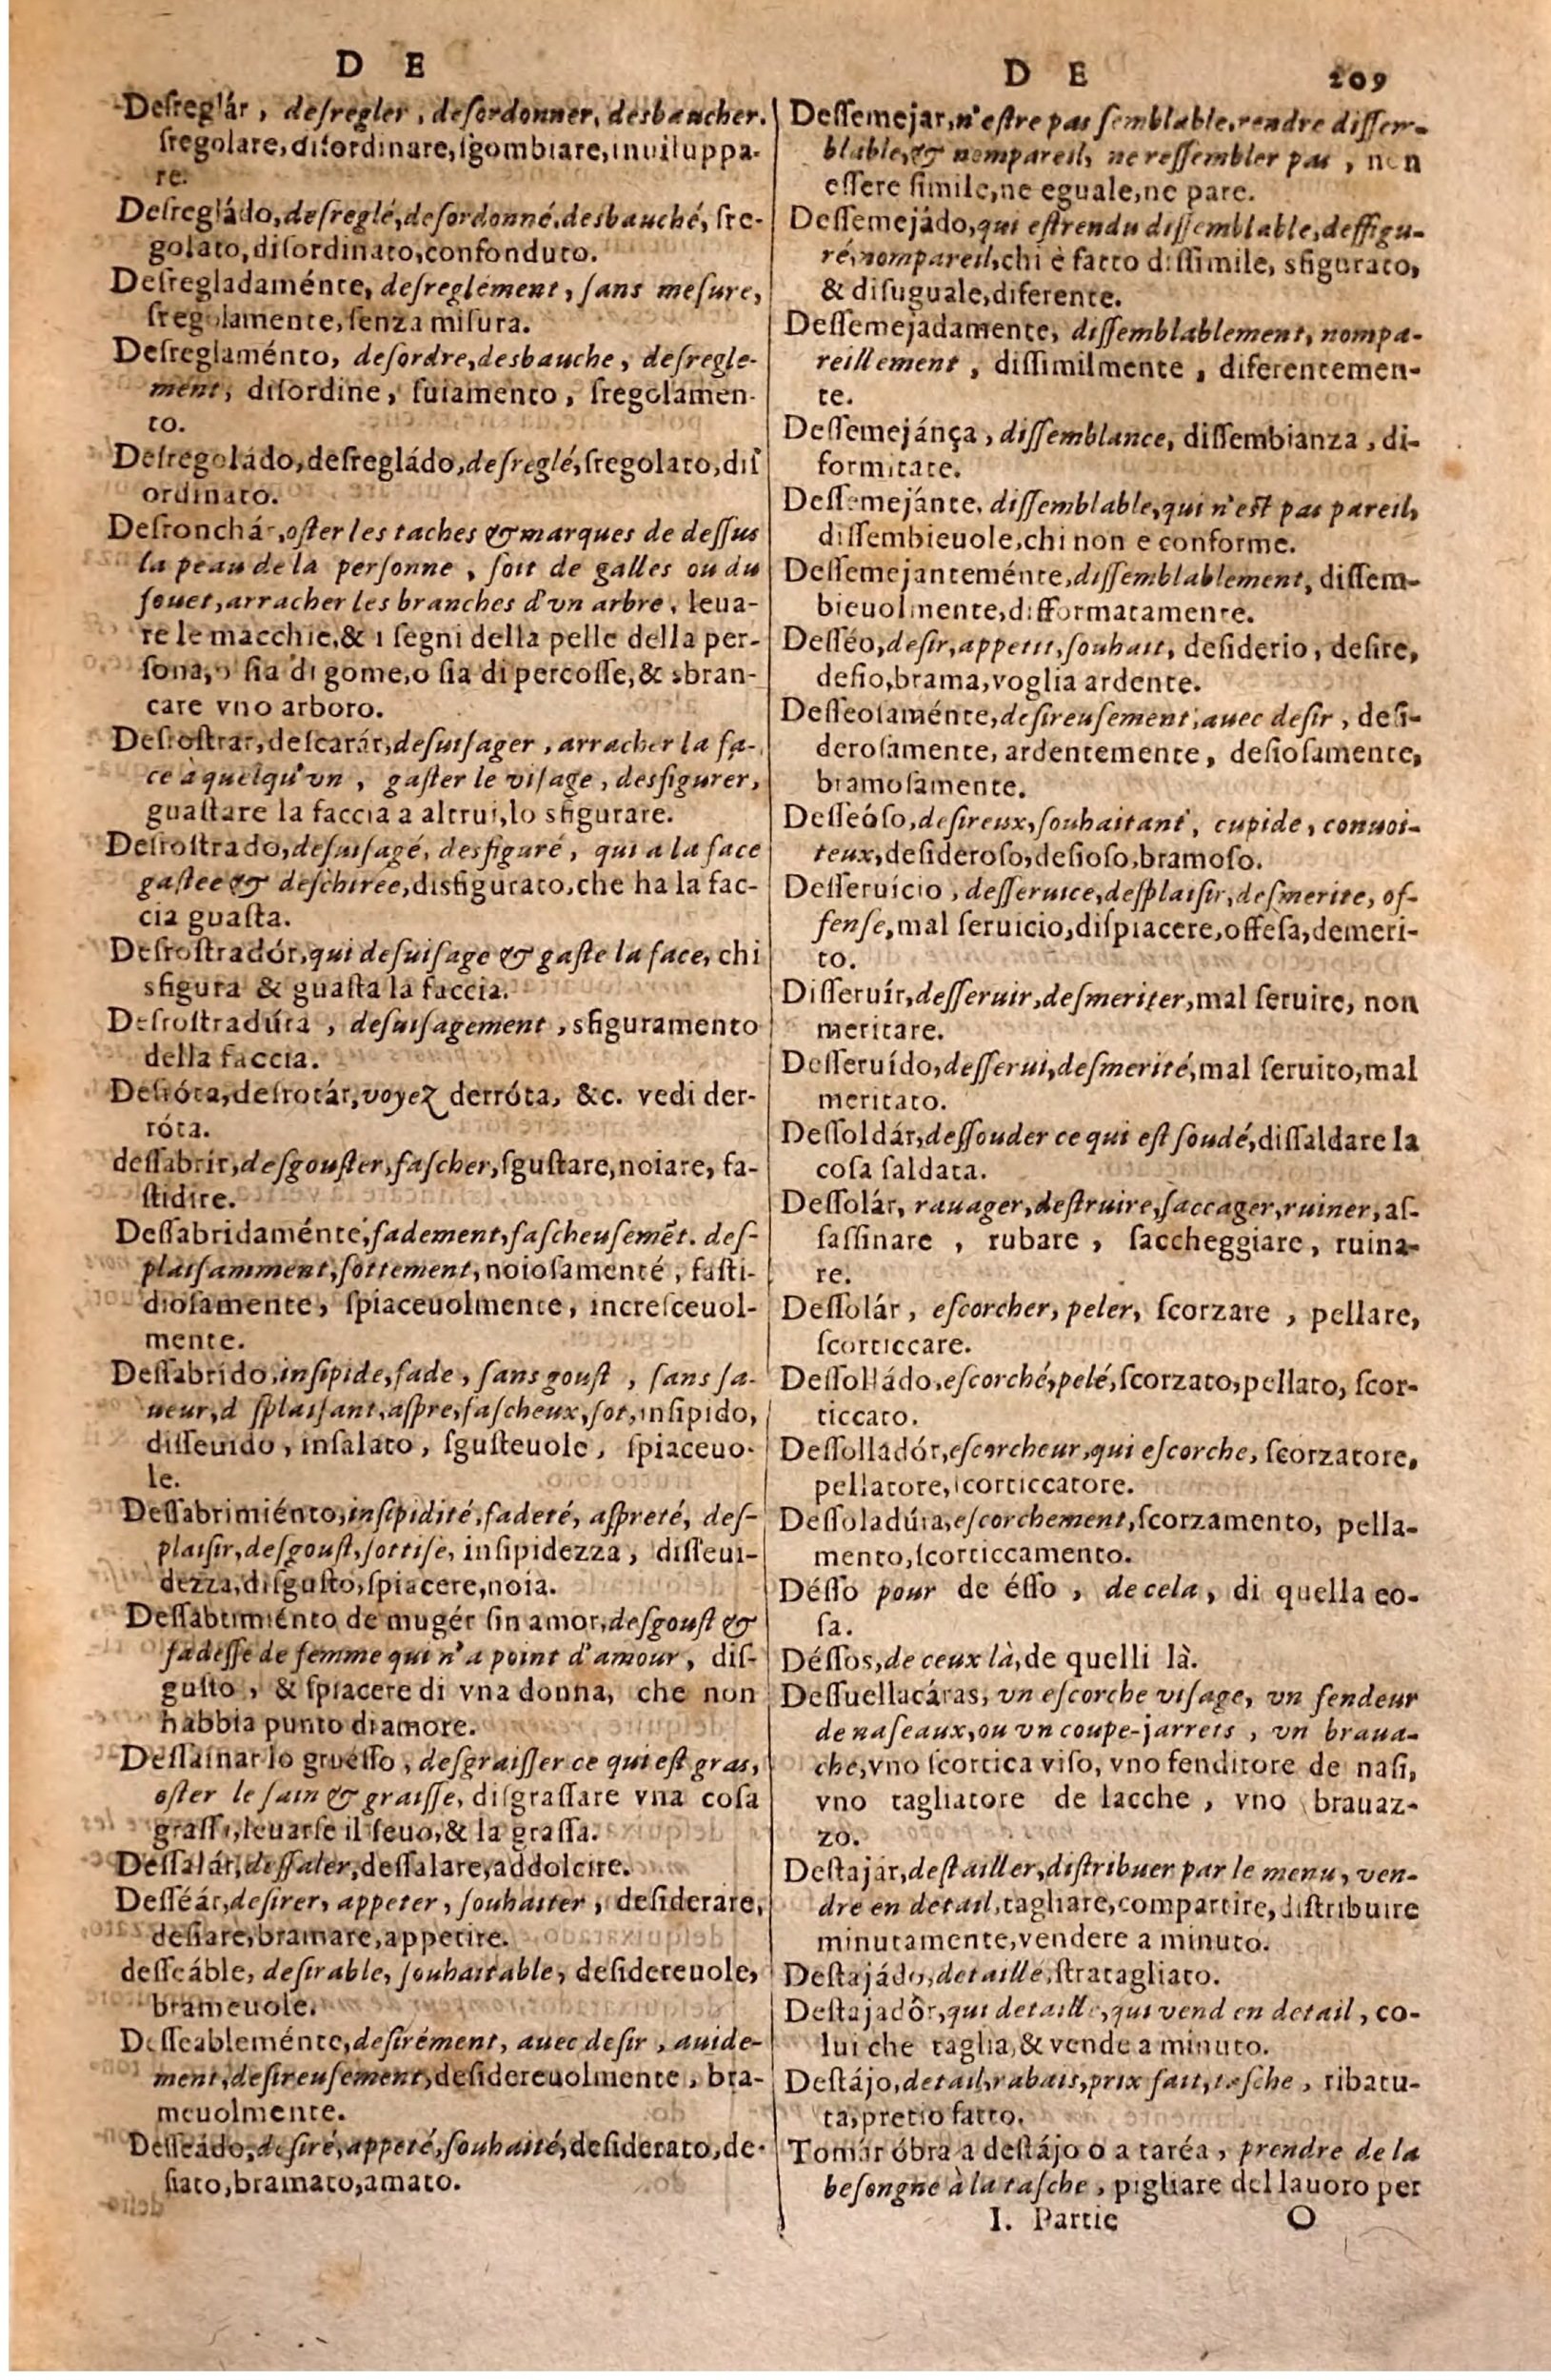 D E
Deſreglár, deſregler, deſordonner, desbaucher.
ſregolare, diſordinare, ſgombiare, inuiluppa-
re.
Deſregládo, deſreglé, deſordonné, desbauché, ſre-
golato, diſordinato, confonduto.
Deſregladaménte, deſreglément, ſans meſure,
ſregolamente, ſenza miſura.
Deſreglaménto, deſordre, desbauche, deſregle-
ment, diſordine, ſuiamento, ſregolamen-
to.
Deſregoládo, deſregládo, deſreglé, ſregolato, diſ
ordinato.
Deſronchár, oſter les taches & marques de deſſus
la peau de la perſonne, ſoit de galles ou du
fouet, arracher les branches d'vn arbre, leua-
re le macchie, & i ſegni della pelle della per-
ſona, o ſia di gome, o ſia di percoſſe, & sbran-
care vno arboro.
Deſroſtrar, deſcarár, deſuiſager, arracher la fa-
ce à quelqu'vn, gaſter le viſage, desfigurer,
guaſtare la faccia a altrui, lo sfigurare.
Deſroſtrado, deſuiſagé, desfiguré, qui a la face
gaſtee & deſchiree, disfigurato, che ha la fac-
cia guaſta.
Deſroſtradór, qui deſuiſage & gaſte la face, chi
sfigura & guaſta la faccia.
Deſroſtradúra, deſuiſagement, sfiguramento
della faccia.
Deſróta, deſrotár, voyez derróta, &c. vedi der-
róta.
deſſabrír, deſgouſter, faſcher, ſguſtare, noiare, fa-
ſtidire.
Deſſabridaménte, fadement, faſcheuſemẽt, deſ-
plaiſamment, ſottement, noioſamenté, faſti-
dioſamente, ſpiaceuolmente, increſceuol-
mente.
Deſſabrído, inſipide, fade, ſans gouſt, ſans ſa-
ueur, d ſplaiſant, aſpre, faſcheux, ſot, inſipido,
diſſeuido, inſalato, ſguſteuole, ſpiaceuo-
le.
Deſſabrimiénto, inſipidité, fadeté, aſpreté, deſ-
plaiſir, deſgouſt, ſottiſe, inſipidezza, diſſeui-
dezza, diſguſto, ſpiacere, noia.
Deſſabrimiénto de mugér ſin amor, deſgouſt &
fadeſſe de femme qui n'a point d'amour, diſ-
guſto, & ſpiacere di vna donna, che non
habbia punto di amore.
Deſſainar lo grueſſo, deſgraiſſer ce qui eſt gras,
oſter le ſain & graiſſe, diſgraſſare vna coſa
graſſa, leuarſe il ſeuo, & la graſſa.
Deſſalár, deſſaler, deſſalare, addolcire.
Deſſéár, deſirer, appeter, ſouhaiter, deſiderare,
deſiare, bramare, appetire.
deſſeáble, deſirable, ſouhaitable, deſidereuole,
brameuole.
Deſſeableménte, deſirément, auec deſir, auide-
ment, deſireuſement, deſidereuolmente, bra-
meuolmente.
Deſſeádo, deſiré, appeté, ſouhaité, deſiderato, de-
ſiato, bramato, amato.
D E 209
Deſſemejar, n'eſtre pas ſemblable, rendre diſſem-
blable, & nompareil, ne reſſembler pas, non
eſſere ſimile, ne eguale, ne pare.
Deſſemejádo, qui eſt rendu diſſemblable, deffigu-
ré, nompareil, chi è fatto diſſimile, sfigurato,
& diſuguale, diferente.
Deſſemejadamente, diſſemblablement, nompa-
reillement, diſſimilmente, diferentemen-
te.
Deſſemejánça, diſſemblance, diſſembianza, di-
formitate.
Deſſemejánte, diſſemblable, qui n'eſt pas pareil,
diſſembieuole, chi non e conforme.
Deſſemejanteménte, diſſemblablement, diſſem-
bieuolmente, difformatamente.
Deſſéo, deſir, appetit, ſouhait, deſiderio, deſire,
deſio, brama, voglia ardente.
Deſſeoſaménte, deſireuſement, auec deſir, deſi-
deroſamente, ardentemente, deſioſamente,
bramoſamente.
Deſſeóſo, deſireux, ſouhaitant, cupide, conuoi-
teux, deſideroſo, deſioſo, bramoſo.
Deſſeruício, deſſeruice, deſplaiſir, deſmerite, of-
fenſe, mal ſeruicio, diſpiacere, offeſa, demeri-
to.
Diſſeruír, deſſeruir, deſmeriter, mal ſeruire, non
meritare.
Deſſeruído, deſſerui, deſmerité, mal ſeruito, mal
meritato.
Deſſoldár, deſſouder ce qui eſt ſoudé, diſſaldare la
coſa ſaldata.
Deſſolár, rauager, deſtruire, ſaccager, ruiner, aſ-
ſaſſinare, rubare, ſaccheggiare, ruina-
re.
Deſſolár, eſcorcher, peler, ſcorzare, pellare,
ſcorticcare.
Deſſolládo, eſcorché, pelé, ſcorzato, pellato, ſcor-
ticcato.
Deſſolladór, eſcorcheur, qui eſcorche, ſcorzatore,
pellatore, ſcorticcatore.
Deſſoladúra, eſcorchement, ſcorzamento, pella-
mento, ſcorticcamento.
Déſſo pour de éſſo, de cela, di quella co-
ſa.
Déſſos, de ceux là, de quelli là.
Deſſuellacáras, vn eſcorche viſage, vn fendeur
de naſeaux, ou vn coupe-jarrets, vn braua-
che, vno ſcortica viſo, vno fenditore de naſi,
vno tagliatore de lacche, vno brauaz-
zo.
Deſtajár, deſtailler, diſtribuer par le menu, ven-
dre en detail, tagliare, compartire, diſtribuire
minutamente, vendere a minuto.
Deſtajádo, detaillé, ſtratagliato.
Deſtajadôr, qui detaille, qui vend en detail, co-
lui che taglia, & vende a minuto.
Deſtájo, detail, rabais, prix fait, taſche, ribatu-
ta, pretio fatto.
Tomár óbra a deſtájo o a taréa, prendre de la
beſongne à la taſche, pigliare del lauoro per
I. Partie O